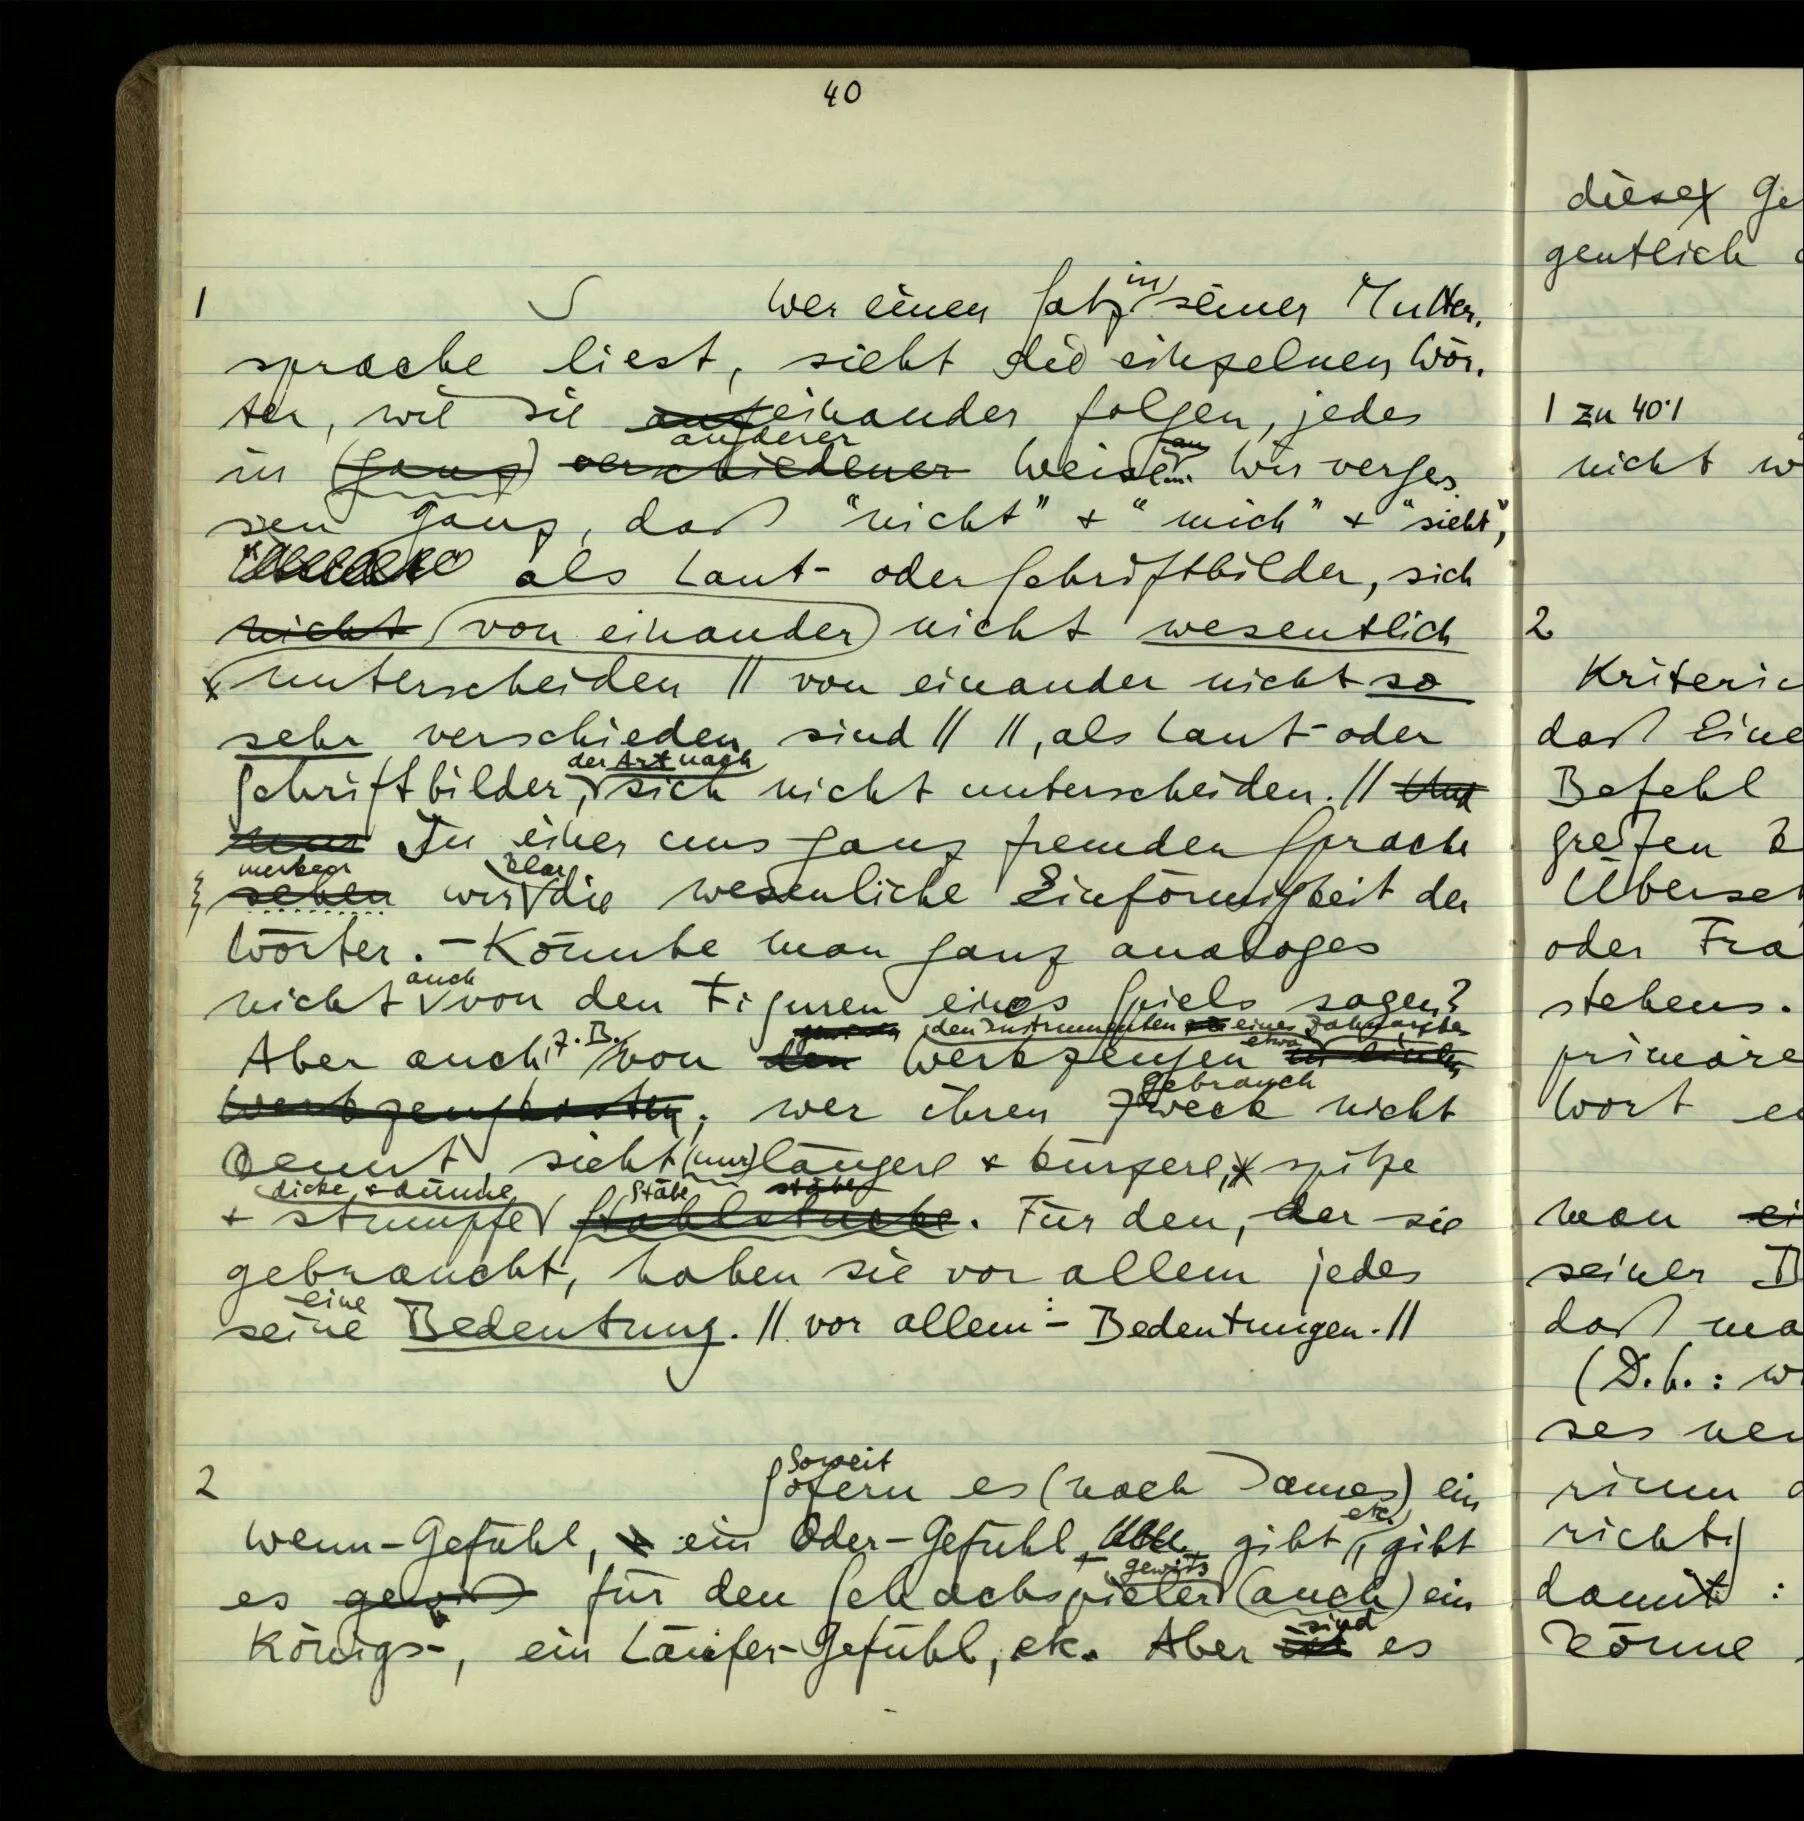 40
1 Wer einen Satz in seiner Mutter-
sprache liest, sieht die einzelnen Wör-
ter, wie sie aufeinander folgen, jedes
anderer
in (ganz) verschiedener Weise an. Wir verges-
sen ganz, daß "nicht" + "mich" + "sieht",
als Laut- oder Schriftbilder, sich
nicht (von einander) nicht wesentlich
unterscheiden // von einander nicht so
sehr verschieden sind // //, als Laut- oder
der Art nach
Schriftbilder, sich nicht unterscheiden. // Und
nur In einer uns ganz fremden Sprache
merken klar
sehen wir die wesenliche Einförmigkeit der
Wörter. – Könnte man ganz analoges
auch
nicht von den Figuren eines Spiels sagen?
z.B. den Instrumenten eines Zahnarztes
etwa
Aber auch, von den Werkzeugen in einem
Gebrauch
Werkzeugkasten; wer ihren Zweck nicht
kennt, sieht (nur) längere + kürzere, spitze
dicke + dünne Stäbe Stäbe
+ stumpfe Stahlstücke. Für den, der sie
gebraucht, haben sie vor allem jedes
eine
seine Bedeutung. // vor allem: – Bedeutungen. //
Soweit
2 Sofern es (nach James) ein
etc.
Wenn-Gefühl, ein Oder-Gefühl, gibt, gibt
gewiß
es gewiß für den Schachspieler (auch) ein
sind
Königs-, ein Läufer-Gefühl, etc. Aber ist es
dieser Ge
gentlich
1 zu 40·1
nicht w
2
Kriteri
daß Eine
Befehl
greifen
Überset
oder Fra
stehens.
primäre
Wort
man ei
seiner B
daß ma
(D.h.: w
ses
richt
damit :
könne